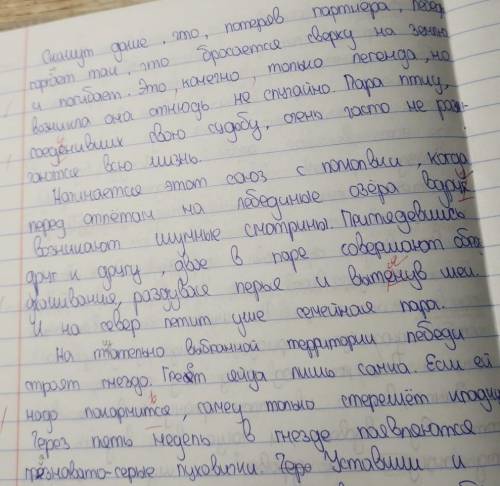 Скажут даже, что, потеряв партнёра, лебедь
горбет там, что бросается сверху на землю
и погибает. Это, конечно, только легенда, но
возникла она отнюдь не случайно. Пара птиц,
соеденивших свою судьбу, очень часто не разлу-
чаются всю жизнь.
Начинается этот союз с помолвки, когда
перед отлётом на лебединые озёра вдруг
возникают шумные смотрины. Приглядевшись
друг к другу, двое в паре совершают обо
раздувая перья и вытянув шеи.
И на север летит уже семейная пара.
На тщательно выбранной территории лебеди
строят гнездо. Греет яйца лишь самка. Если ей
надо покормится, самец только стережёт кладку
Через пять недель в гнезде появляются
грязновато-серые пуховички. Через Уставшим и